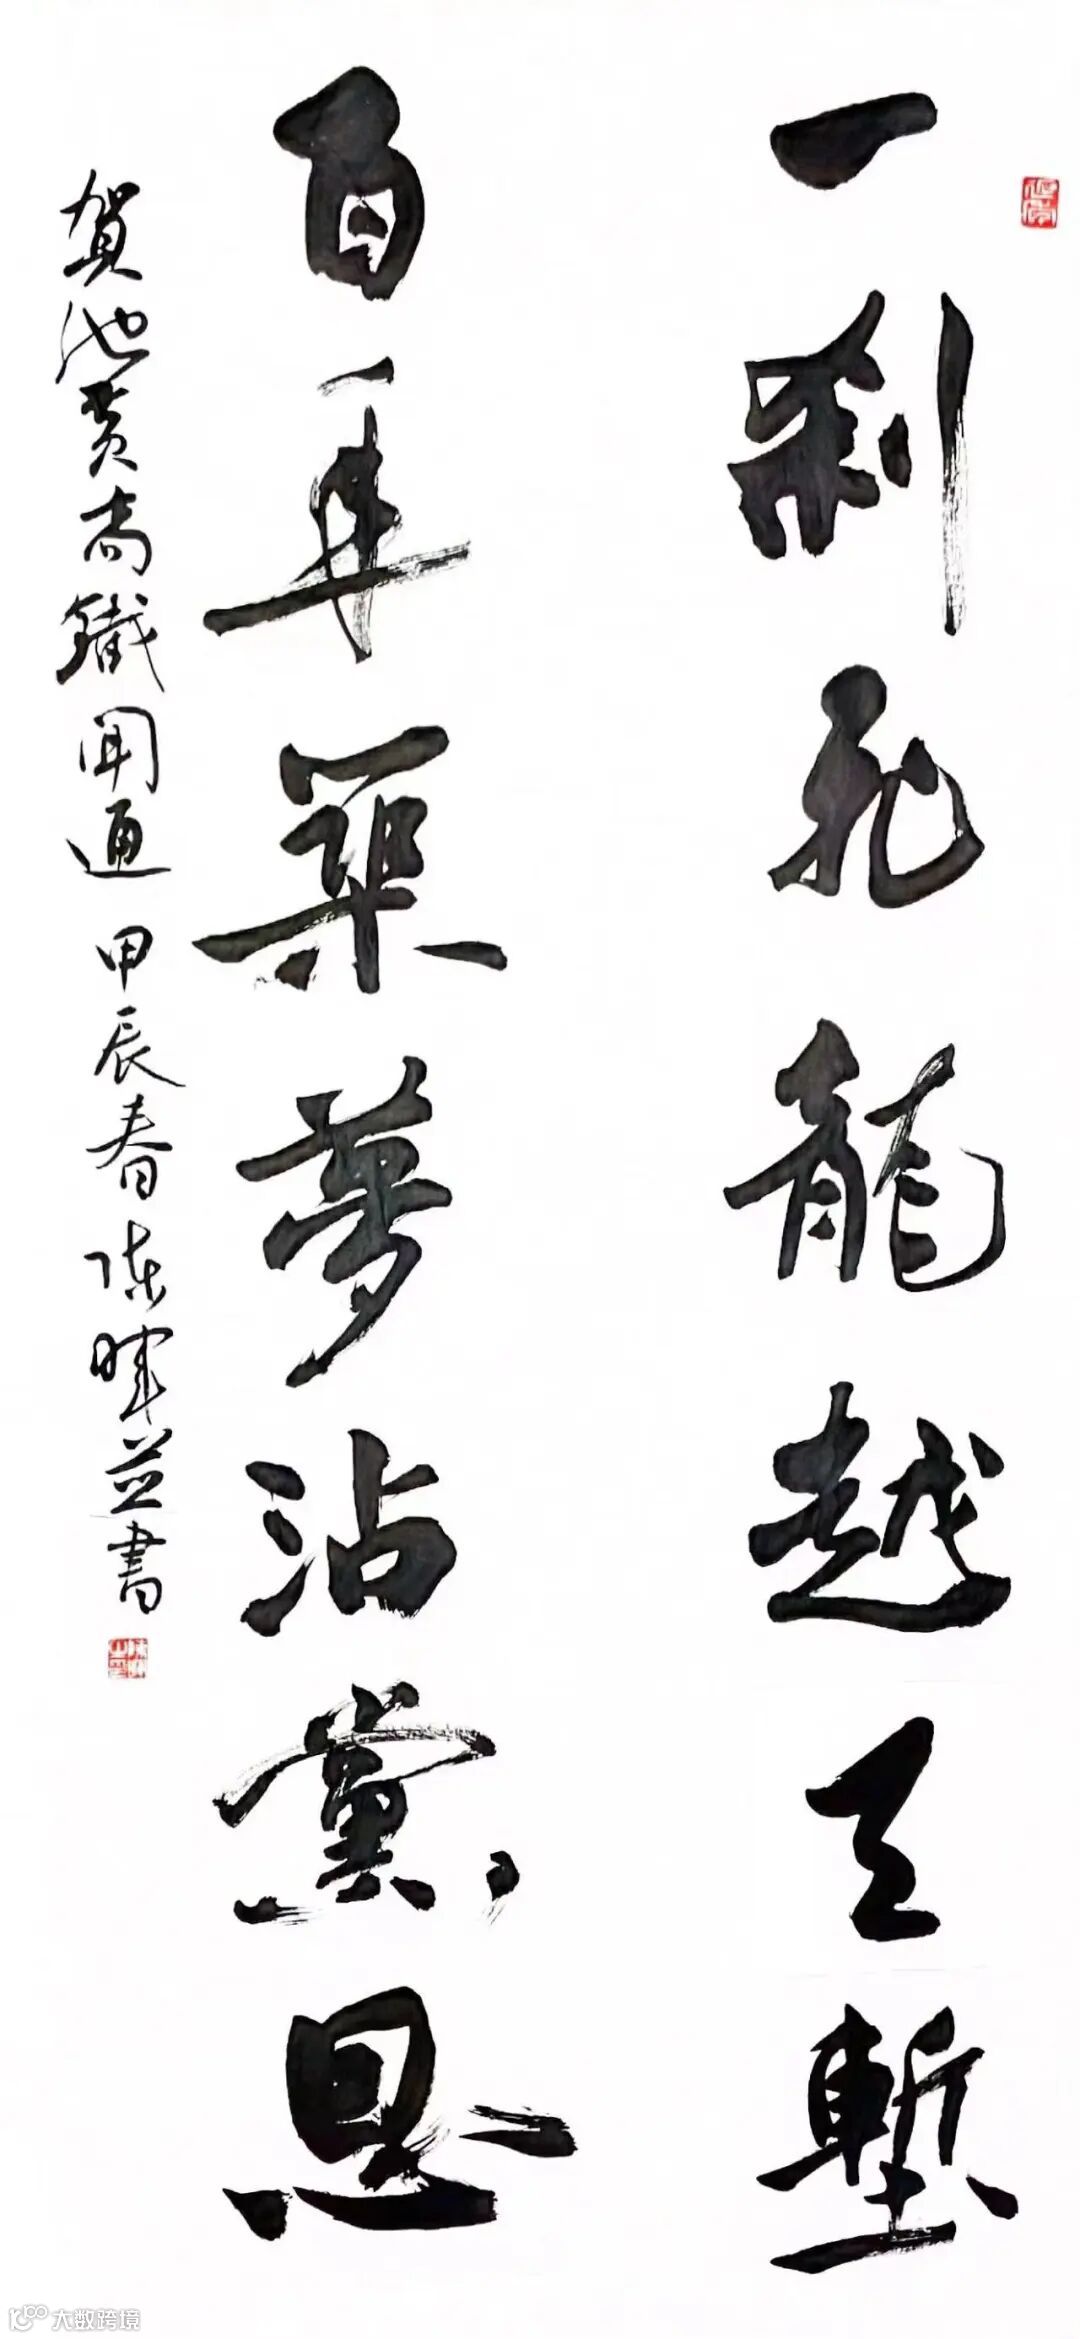 一刹飛龍越天塹
百年築夢沾黨恩
賀池黄高鐵開通 甲辰春 陳暉並書
大数跨境